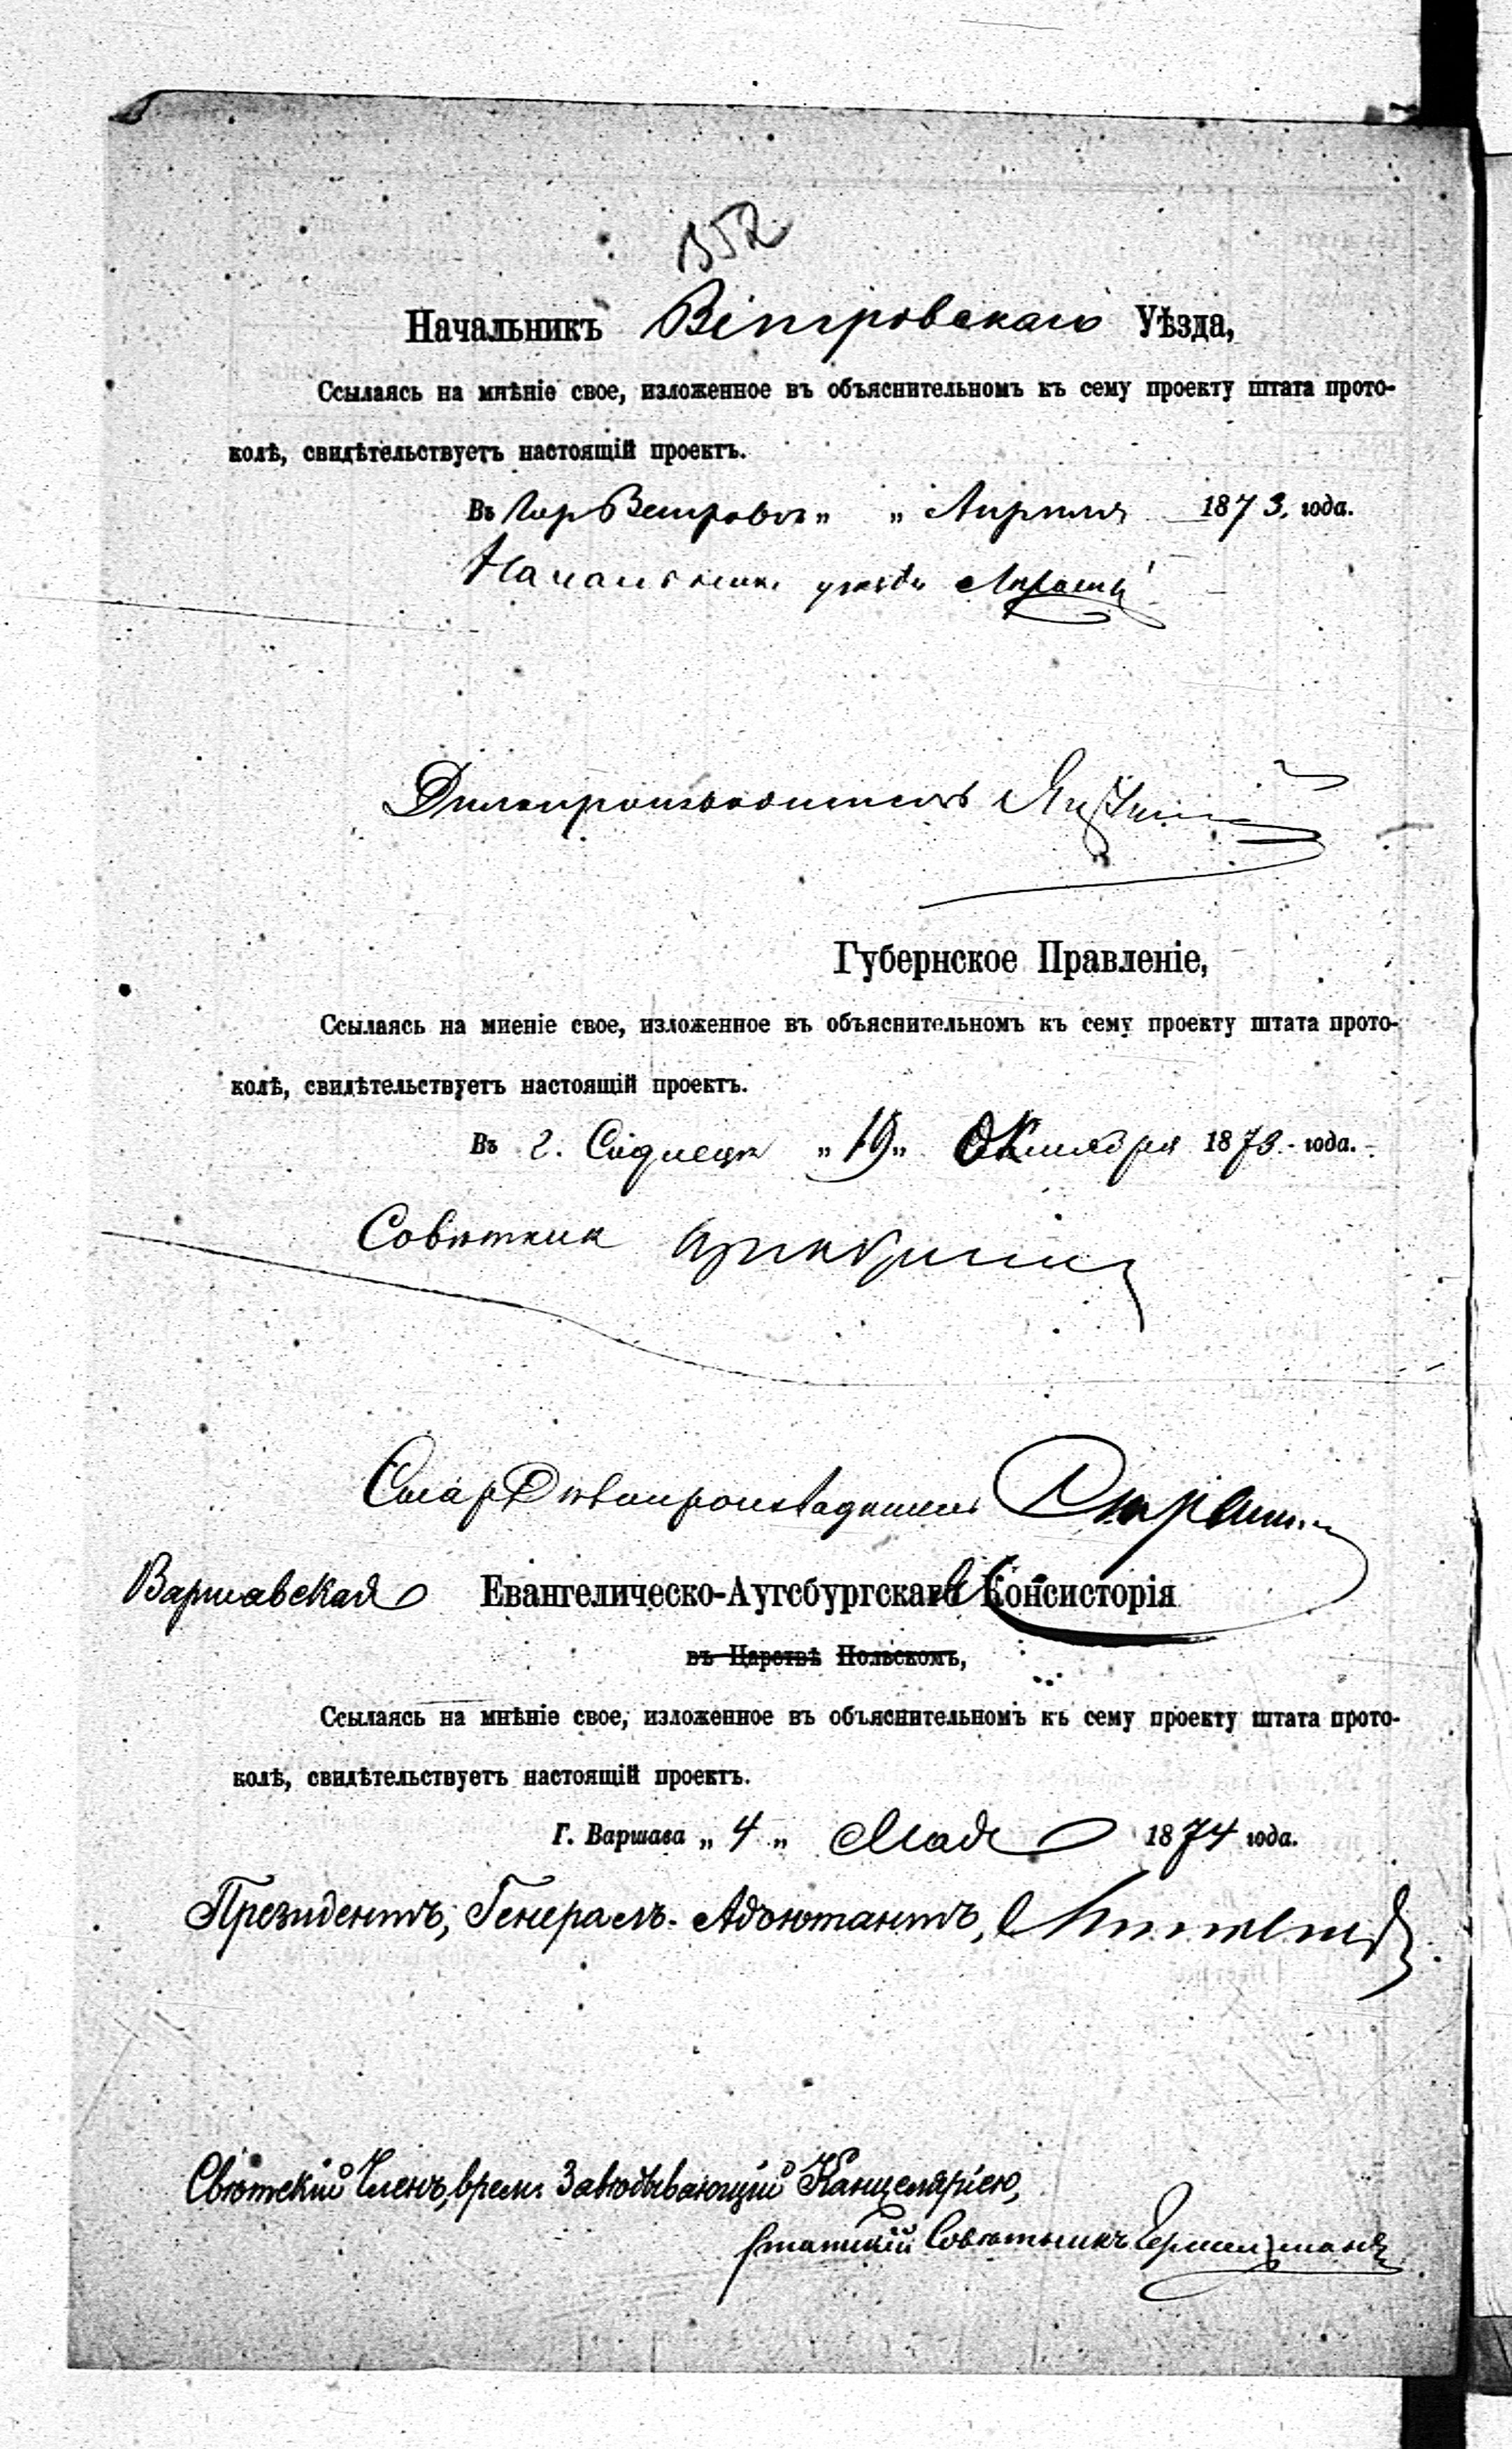 352
Начальникъ Венгровскаго Уѣзда,
Ссылаясь на мнѣніе свое, изложенное въ объяснительномъ къ сему проекту штата прото-
колѣ, свидѣтельствуетъ настоящій проектъ.
Въ Гор Венгровѣ „ „ Апрѣля 1873. года.
Начальникъ уѣзда
Дѣлопроизводитель
Губернское Правленіе,
Ссылаясь на мненіе свое, изложенное въ объяснительномъ къ сему проекту штата прото-
колѣ, свидѣтельствуетъ настоящій проектъ.
Въ г. Сѣдлецѣ „19„ Октября 1873.- года.-
Совѣтник
Стар Дѣлопроизводитель
Варшавская Евангелическо-Аугсбургская Консисторія
въ Царствѣ Польскомъ,
Ссылаясь на мнѣніе свое, изложенное въ объяснительномъ къ сему проекту штата прото-
колѣ, свидѣтельствуетъ настоящій проектъ.
Г. Варшава „ 4 „ Мая 1874 года.
Президентъ, Генералъ-Адъютантъ,
Свѣтскій Членъ, врем. Завѣдывающій Канцеляріею,
Статскій Совѣтникъ